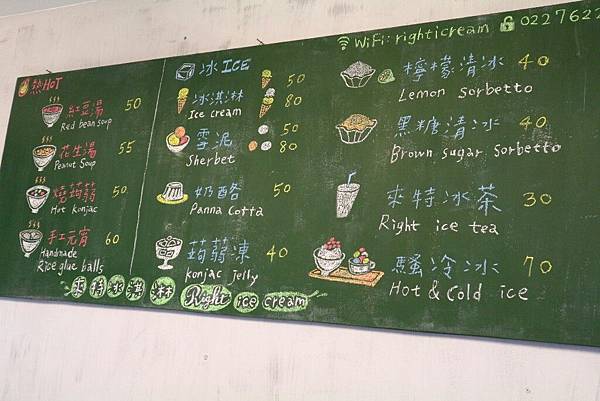 WiFi: righticream 0227622
熱HOT
紅豆湯 50
Red bean soup
花生湯 55
Peanut Soup
燒蒟蒻 50
Hot konjac
手工元宵 60
Handmade
Rice glue balls
冰ICE
冰淇淋 50
Ice cream 80
雪泥 50
Sherbet 80
奶酪 50
Panna Cotta
蒟蒻凍 40
konjac jelly
檸檬清冰 40
Lemon Sorbetto
黑糖清冰 40
Brown sugar Sorbetto
來特冰茶 30
Right ice tea
騷冷冰 70
Hot & Cold ice
來特冰淇淋 Right ice cream